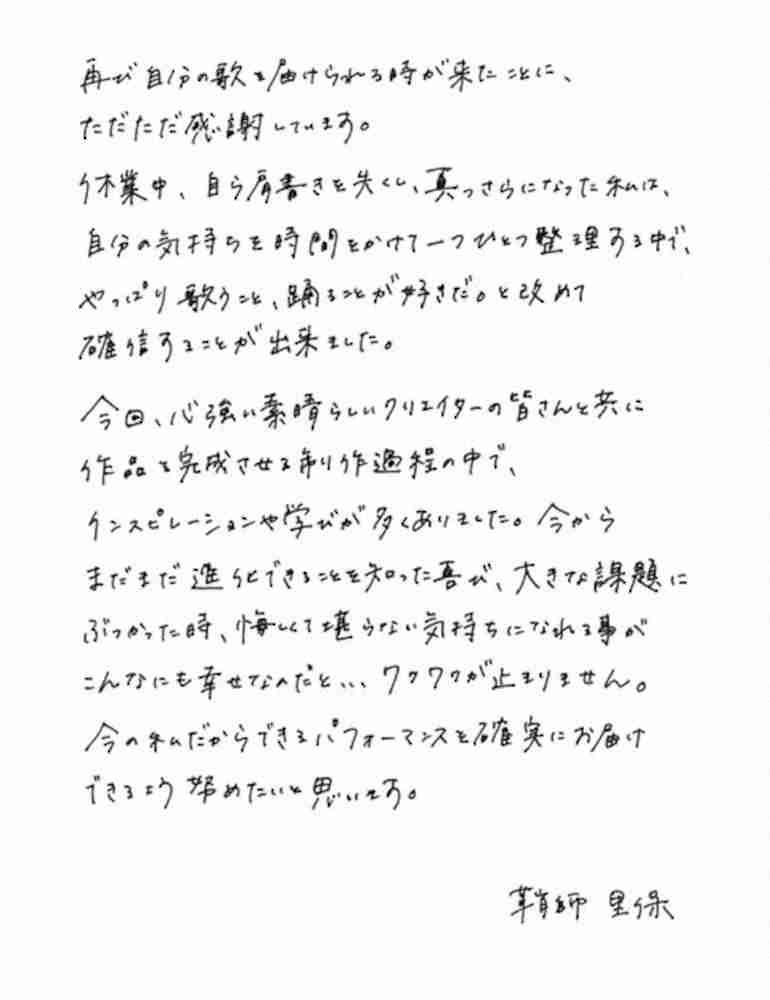 再び自分の歌を届けられる時が来たことに、
ただただ感謝しています。
休業中、自ら肩書きを失くし、真っさらになった私は、
自分の気持ちを時間をかけて一つひとつ整理する中で、
やっぱり歌うこと、踊ることが好きだ。と改めて
確信することが出来ました。
今回、心強い素晴らしいクリエイターの皆さんと共に
作品を完成させる制作過程の中で、
インスピレーションや学びが多くありました。今から
まだまだ進化できることを知った喜び、大きな課題に
ぶつかった時、悔しくて堪らない気持ちになれる事が
こんなにも幸せなんだと... ワクワクが止まりません。
今の私だからできるパフォーマンスを確実にお届け
できるよう努めたいと思います。
鞘師 里保